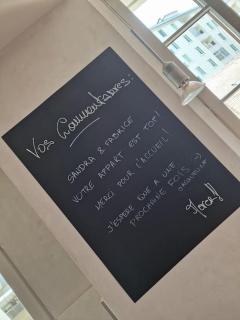 Vos Commentaires:
SANDRA & FABRICE
VOTRE APPART EST TOP!
MERCI POUR L'ACCUEIL!
J'ESPÈRE QUE A UNE
PROCHAINE FOIS :-)
Merci!